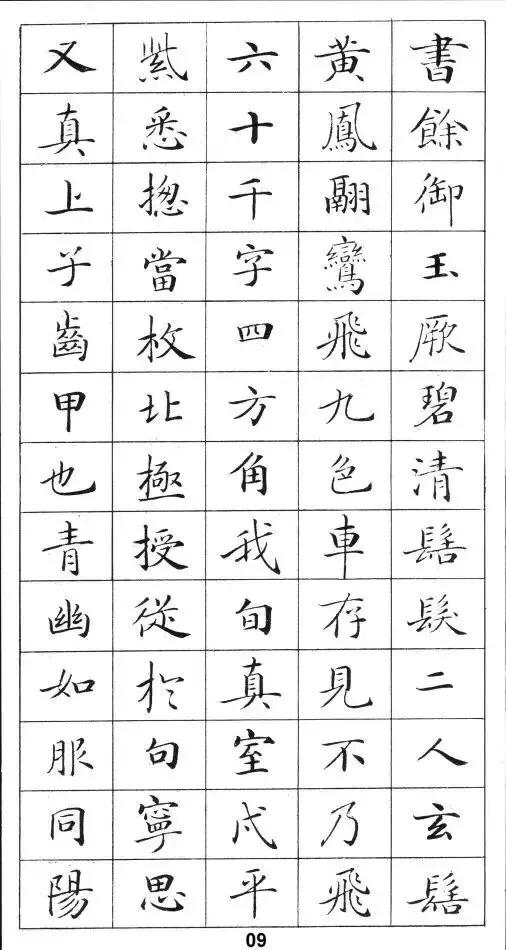 書餘御玉厥碧清髻髮二人玄髻
黃鳳翮鸞飛九色車存見不乃飛
六十千字四方角我旬真室戊平
紫悉揔當枚北極授從於句寧思
又真上子齒甲也青幽如服同陽
09